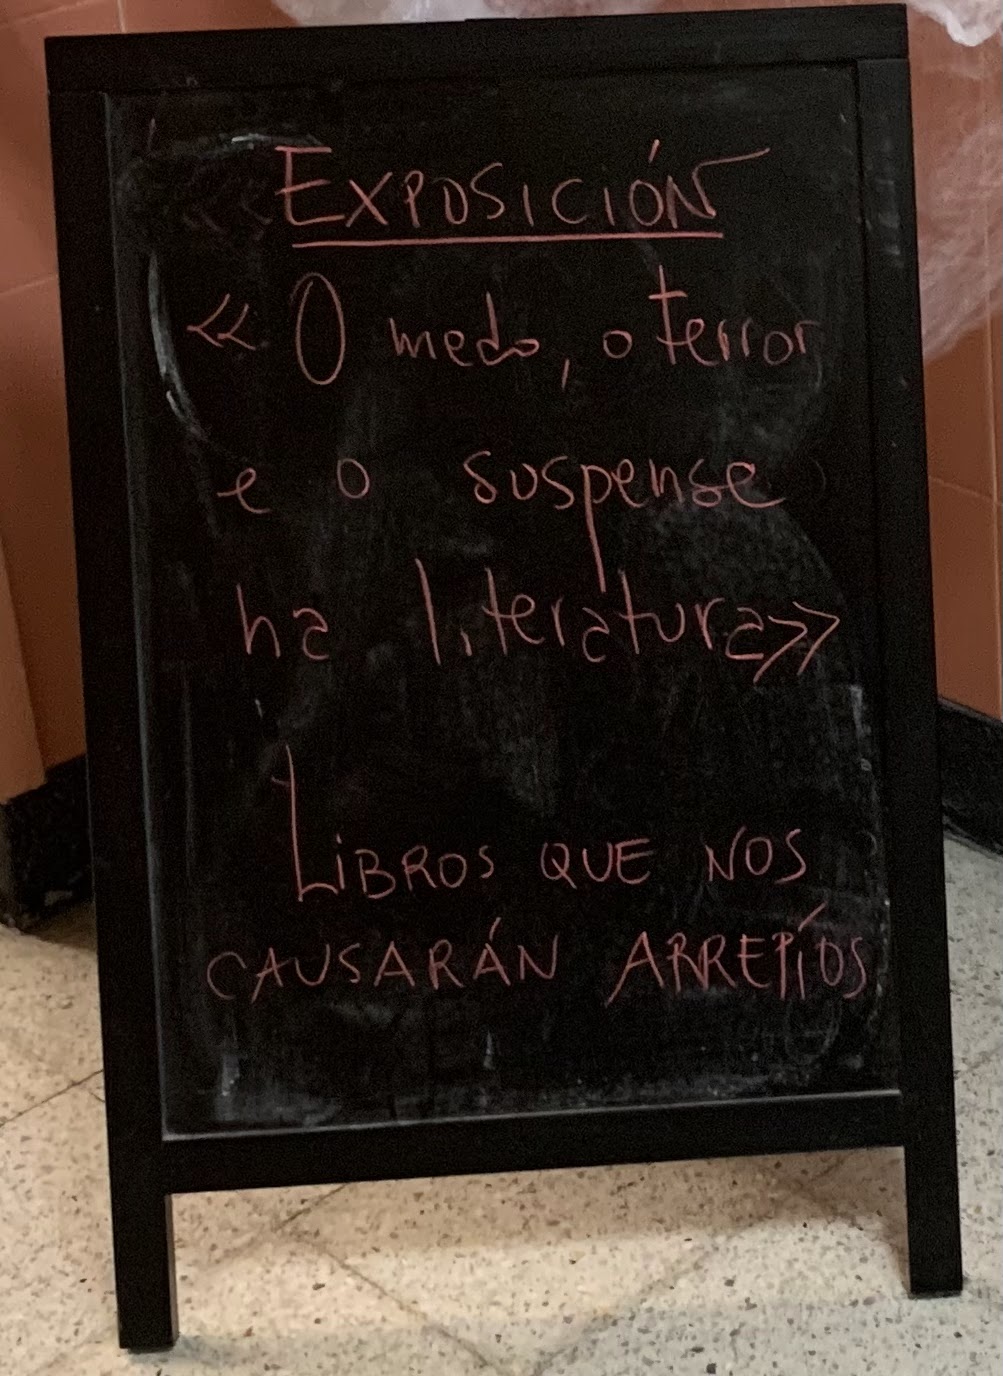 EXPOSICIÓN
«O medo, o terror
e o suspense
na literatura»
LIBROS QUE NOS
CAUSARÁN ARREPÍOS